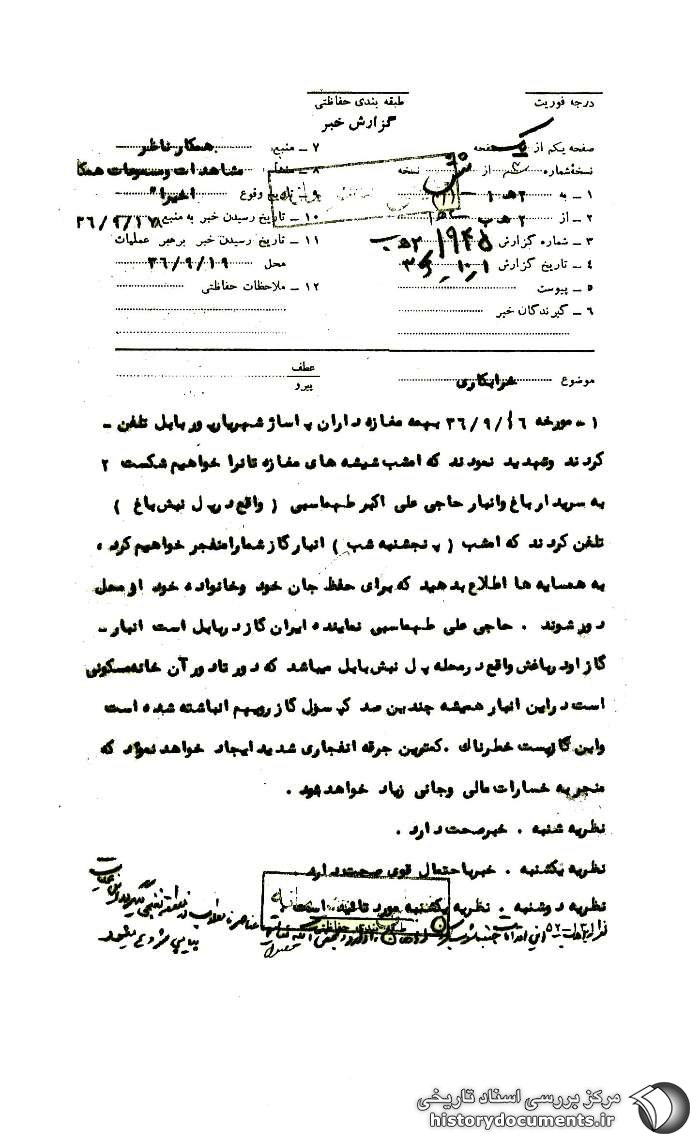 درجه فوریت
طبقه بندی حفاظتی
گزارش خبر
صفحه یکم از صفحه
نسخه شماره از نسخه
۱ ـ به ۲ هـ ۱
۲ ـ از ۲ هـ ب
۳ ـ شماره گزارش ۱۹۴۵ / ۲ هـ ب
۴ ـ تاریخ گزارش ۱ ر ۱۰ ر ۳۶
۵ ـ پیوست
۶ ـ گیرندگان خبر
۷ ـ منبع همکار ناظر
۸ ـ منشأ مشاهدات و مسموعات همکا
۹ ـ تاریخ وقوع اخیرا"
۱۰ ـ تاریخ رسیدن خبر به منبع ۳۶/۹/۱۷۸
۱۱ ـ تاریخ رسیدن خبر برهبر عملیات
محل ۳۶/۹/۱۹
۱۲ ـ ملاحظات حفاظتی
موضوع خرابکاری
عطف
پیرو
۱ ـ مورخه ۳۶/۹/۱۶ بهمه مغازه داران پاساژ شهریار ور بابل تلفن ـ
کردند وتهدید نمودند که امشب شیشه های مغازه تانرا خواهیم شکست ۲
به سریدار باغ وانبار حاجی علی اکبر طهماسبی ( واقع در پل نبش باغ )
تلفن کردند که امشب ( پنجشنبه شب ) انبار گاز شمارا منفجر خواهیم کرد ،
به همسایه ها اطلاع بدهید که برای حفظ جان خود وخانواده خود از محل
دور شوند . حاجی علی طهماسبی نماینده ایران گاز در بابل است انبار ـ
گاز او در باغش واقع در محله پل نبش بابل میباشد که دور تا دور آن خانه مسکونی
است در این انبار همیشه چندین صد کپسول گاز رویهم انباشته شده است
واین کاریست خطرناک . کمترین جرقه انفجاری شدید ایجاد خواهد نمود که
منجر به خسارات مالی وجانی زیاد خواهد شد .
نظریه شنبه . خبر صحت دارد .
نظریه یکشنبه . خبر با احتمال قوی صحت دارد
نظریه دوشنبه . نظریه یکشنبه مورد تائید است .
طبقه بندی حفاظتی
مرکز بررسی اسناد تاریخی
historydocuments.ir